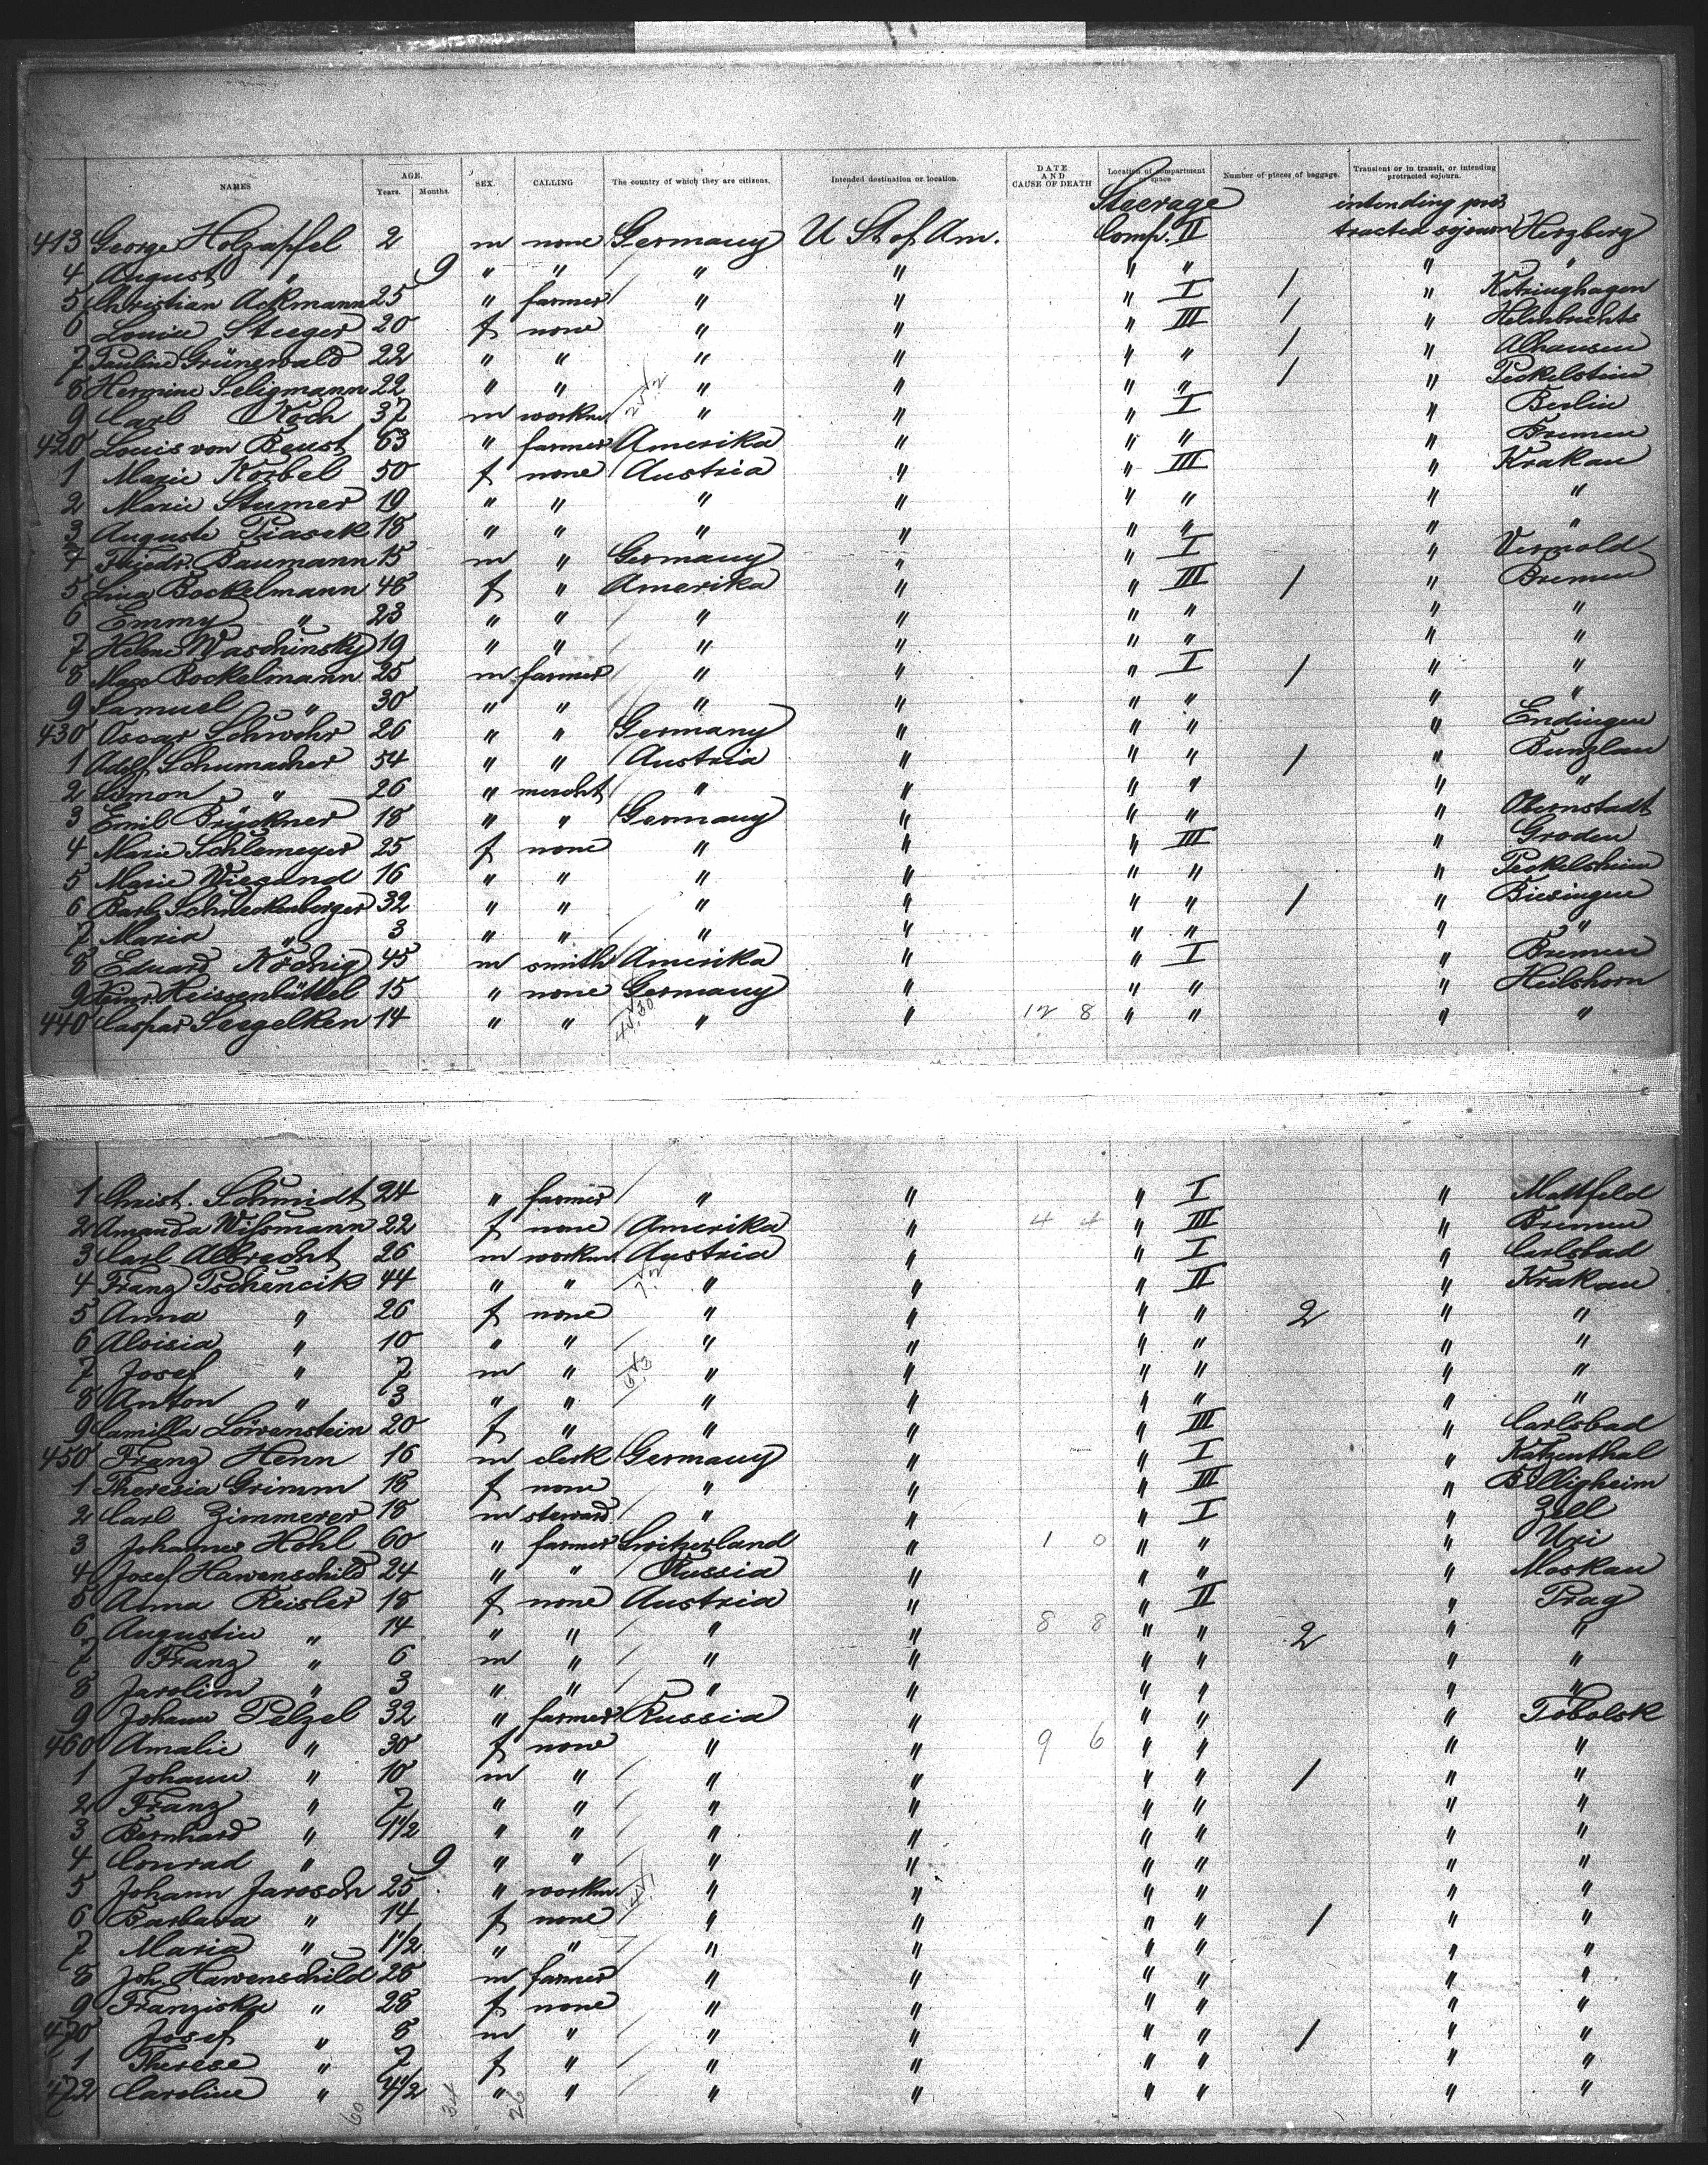 NAMES AGE. Years. Months. SEX. CALLING The country of which they are citizens. Intended destination or location. DATE AND CAUSE OF DEATH Location of compartment or space Number of pieces of baggage. Transient or in transit, or intending protracted sojourn.
Steerage intending pro-
413 George Holzapfel 2 m none Germany U St of Am. Comp. II tracted sojourn Herzberg
4 August " 9 " " " " " " " "
5 Christian Ackmann 25 " farmer " " " I 1 " Katrinhagen
6 Louise Steeger 20 f none " " " III 1 " Helmbrechts
7 Pauline Grünewald 22 " " " " " " 1 " Alhausen
8 Hermine Seligmann 22 " " " " " " 1 " Peckelsheim
9 Carl Koch 37 m workm. " " " I " Berlin
420 Louis von Beust 63 " farmer Amerika " " " " Bremen
1 Marie Korbel 50 f none Austria " " III " Krakau
2 Marie Stumer 19 " " " " " " " "
3 Auguste Piasek 18 " " " " " " " "
4 Friedr. Baumann 15 m " Germany " " I " Versmold
5 Lina Bockelmann 48 f " Amerika " " III 1 " Bremen
6 Emmy " 23 " " " " " " " "
7 Helene Waschinsky 19 " " " " " " " "
8 Max Bockelmann 25 m farmer " " " I 1 " "
9 Samuel " 30 " " " " " " " "
430 Oscar Schwehr 26 " " Germany " " " " Endingen
1 Adolf Schumacher 54 " " Austria " " " 1 " Bunzlau
2 Simon " 26 " mercht " " " " " "
3 Emil Brückner 18 " " Germany " " " " Obernstadt
4 Marie Schlemeyer 25 f none " " " III " Groden
5 Marie Wiegand 16 " " " " " " " Peckelsheim
6 Barb. Schneckenberger 32 " " " " " " 1 " Biesingen
7 Maria " 3 " " " " " " " "
8 EduardKöchig 45 m smith Amerika " " I " Bremen
9 Heinr. Heissenbüttel 15 " none Germany " " " " Heilshorn
440 Caspar Seegelken 14 " " " " 12 8 " " " "
1 Christ. Schmidt 24 " farmer " " " I " Mattfeld
2 Amanda Wissmann 22 f none Amerika " 4 4 " III " Bremen
3 Carl Albrecht 26 m workm. Austria " " I " Carlsbad
4 Franz Pschencik 44 " " " " " II " Krakau
5 Anna " 26 f none " " " " 2 " "
6 Aloisia " 10 " " " " " " " "
7 Josef " 7 m " " " " " " "
8 Anton " 3 " " " " " " " "
9 Camilla Löwenstein 20 f " " " " III " Carlsbad
450 Franz Henn 16 m clerk Germany " " I " Katzenthal
1 Theresia Grimm 18 f none " " " III " Billigheim
2 Carl Zimmerer 18 m steward " " " I " Zell
3 Johannes Hohl 60 " farmer Switzerland " 1 0 " " " Uri
4 Josef Hawenschild 24 " " Russia " " " " Moskau
5 Anna Reisler 18 f none Austria " " II " Prag
6 Augustin " 14 " " " " 8 8 " " 2 " "
7 Franz " 6 m " " " " " " "
8 Jarolim " 3 " " " " " " " "
9 Johann Pelzel 32 " farmer Russia " " " " Tobolsk
460 Amalie " 30 f none " " 9 6 " " " "
1 Johann " 10 m " " " " " 1 " "
2 Franz " 7 " " " " " " " "
3 Bernhard " 1 1/2 " " " " " " " "
4 Conrad " 9 " " " " " " " "
5 Johann Jarosch 25 " workm. " " " " " "
6 Barbara " 14 f none " " " " 1 " "
7 Maria " 1 1/2 " " " " " " " "
8 Joh. Hawenschild 28 m farmer " " " " " "
9 Franziska " 28 f none " " " " " "
470 Josef " 8 m " " " " " 1 " "
1 Therese " 7 f " " " " " " "
472 Caroline " 4 1/2 " " " " " " " "
60 34 26